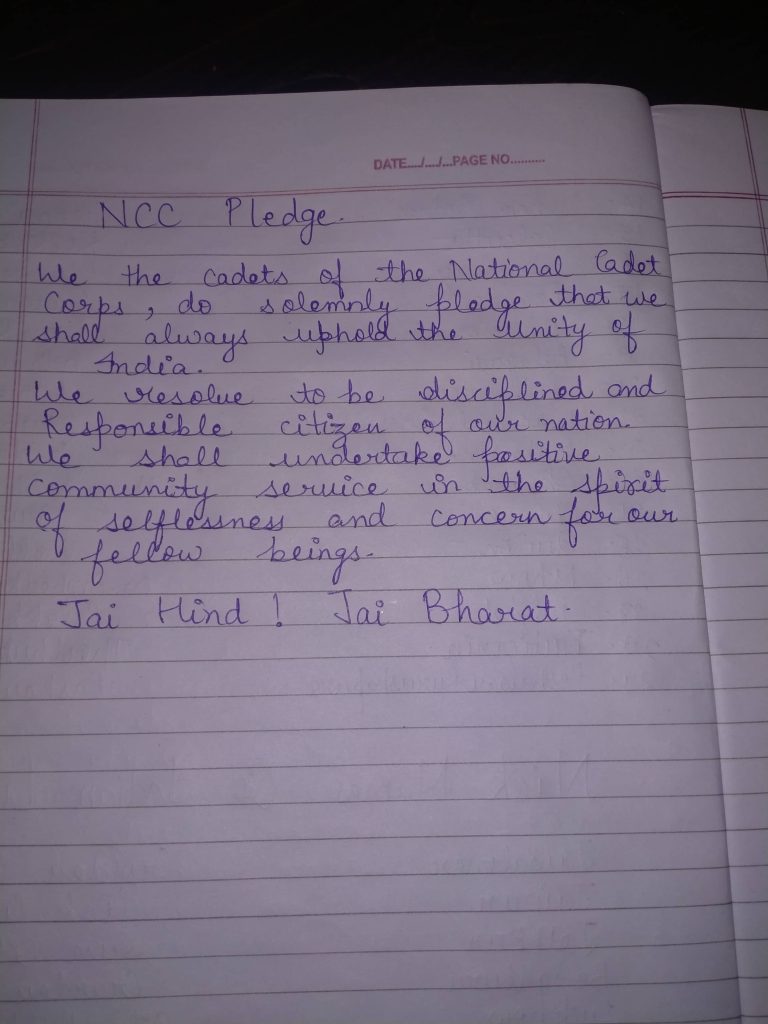 DATE..../..../....PAGE NO..........
NCC Pledge.
We the cadets of the National Cadet
Corps, do solemnly pledge that we
shall always uphold the unity of
India.
We resolve to be disciplined and
Responsible citizen of our nation.
We shall undertake positive
community service in the spirit
of selflessness and concern for our
fellow beings.
Jai Hind! Jai Bharat.